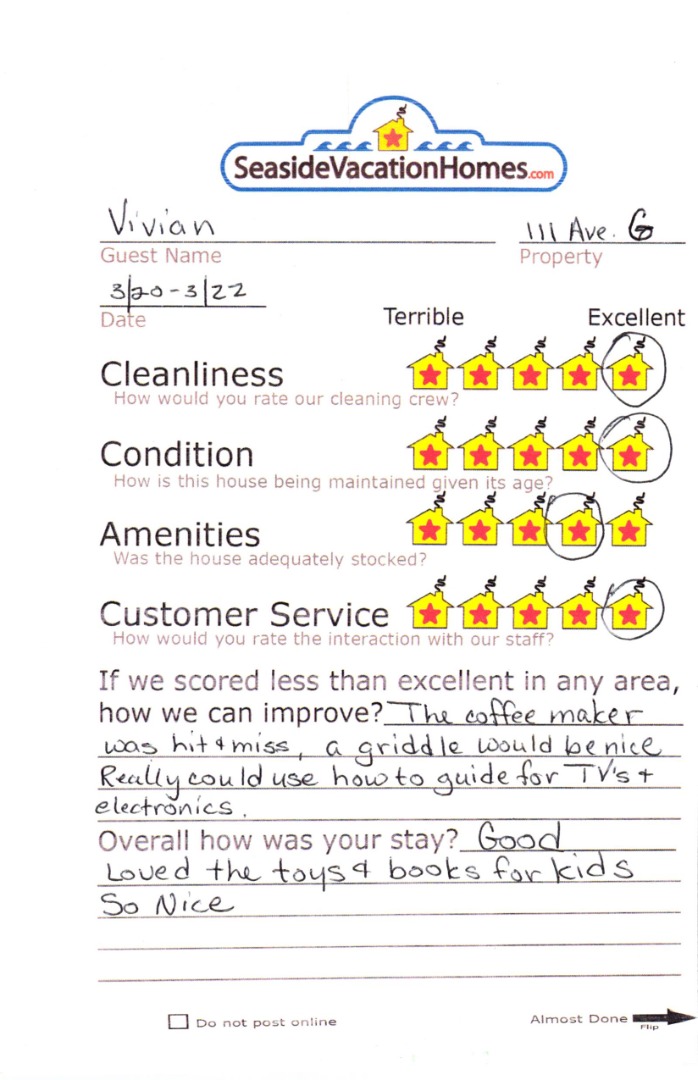 SeasideVacationHomes.com
Vivian 111 Ave. G
Guest Name Property
3/20-3/22
Date Terrible Excellent
Cleanliness
How would you rate our cleaning crew?
Condition
How is this house being maintained given its age?
Amenities
Was the house adequately stocked?
Customer Service
How would you rate the interaction with our staff?
If we scored less than excellent in any area,
how we can improve? The coffee maker
was hit & miss, a griddle would be nice
Really could use how to guide for TV's +
electronics.
Overall how was your stay? Good
Loved the toys & books for kids
So Nice
Do not post online Almost Done
Flip